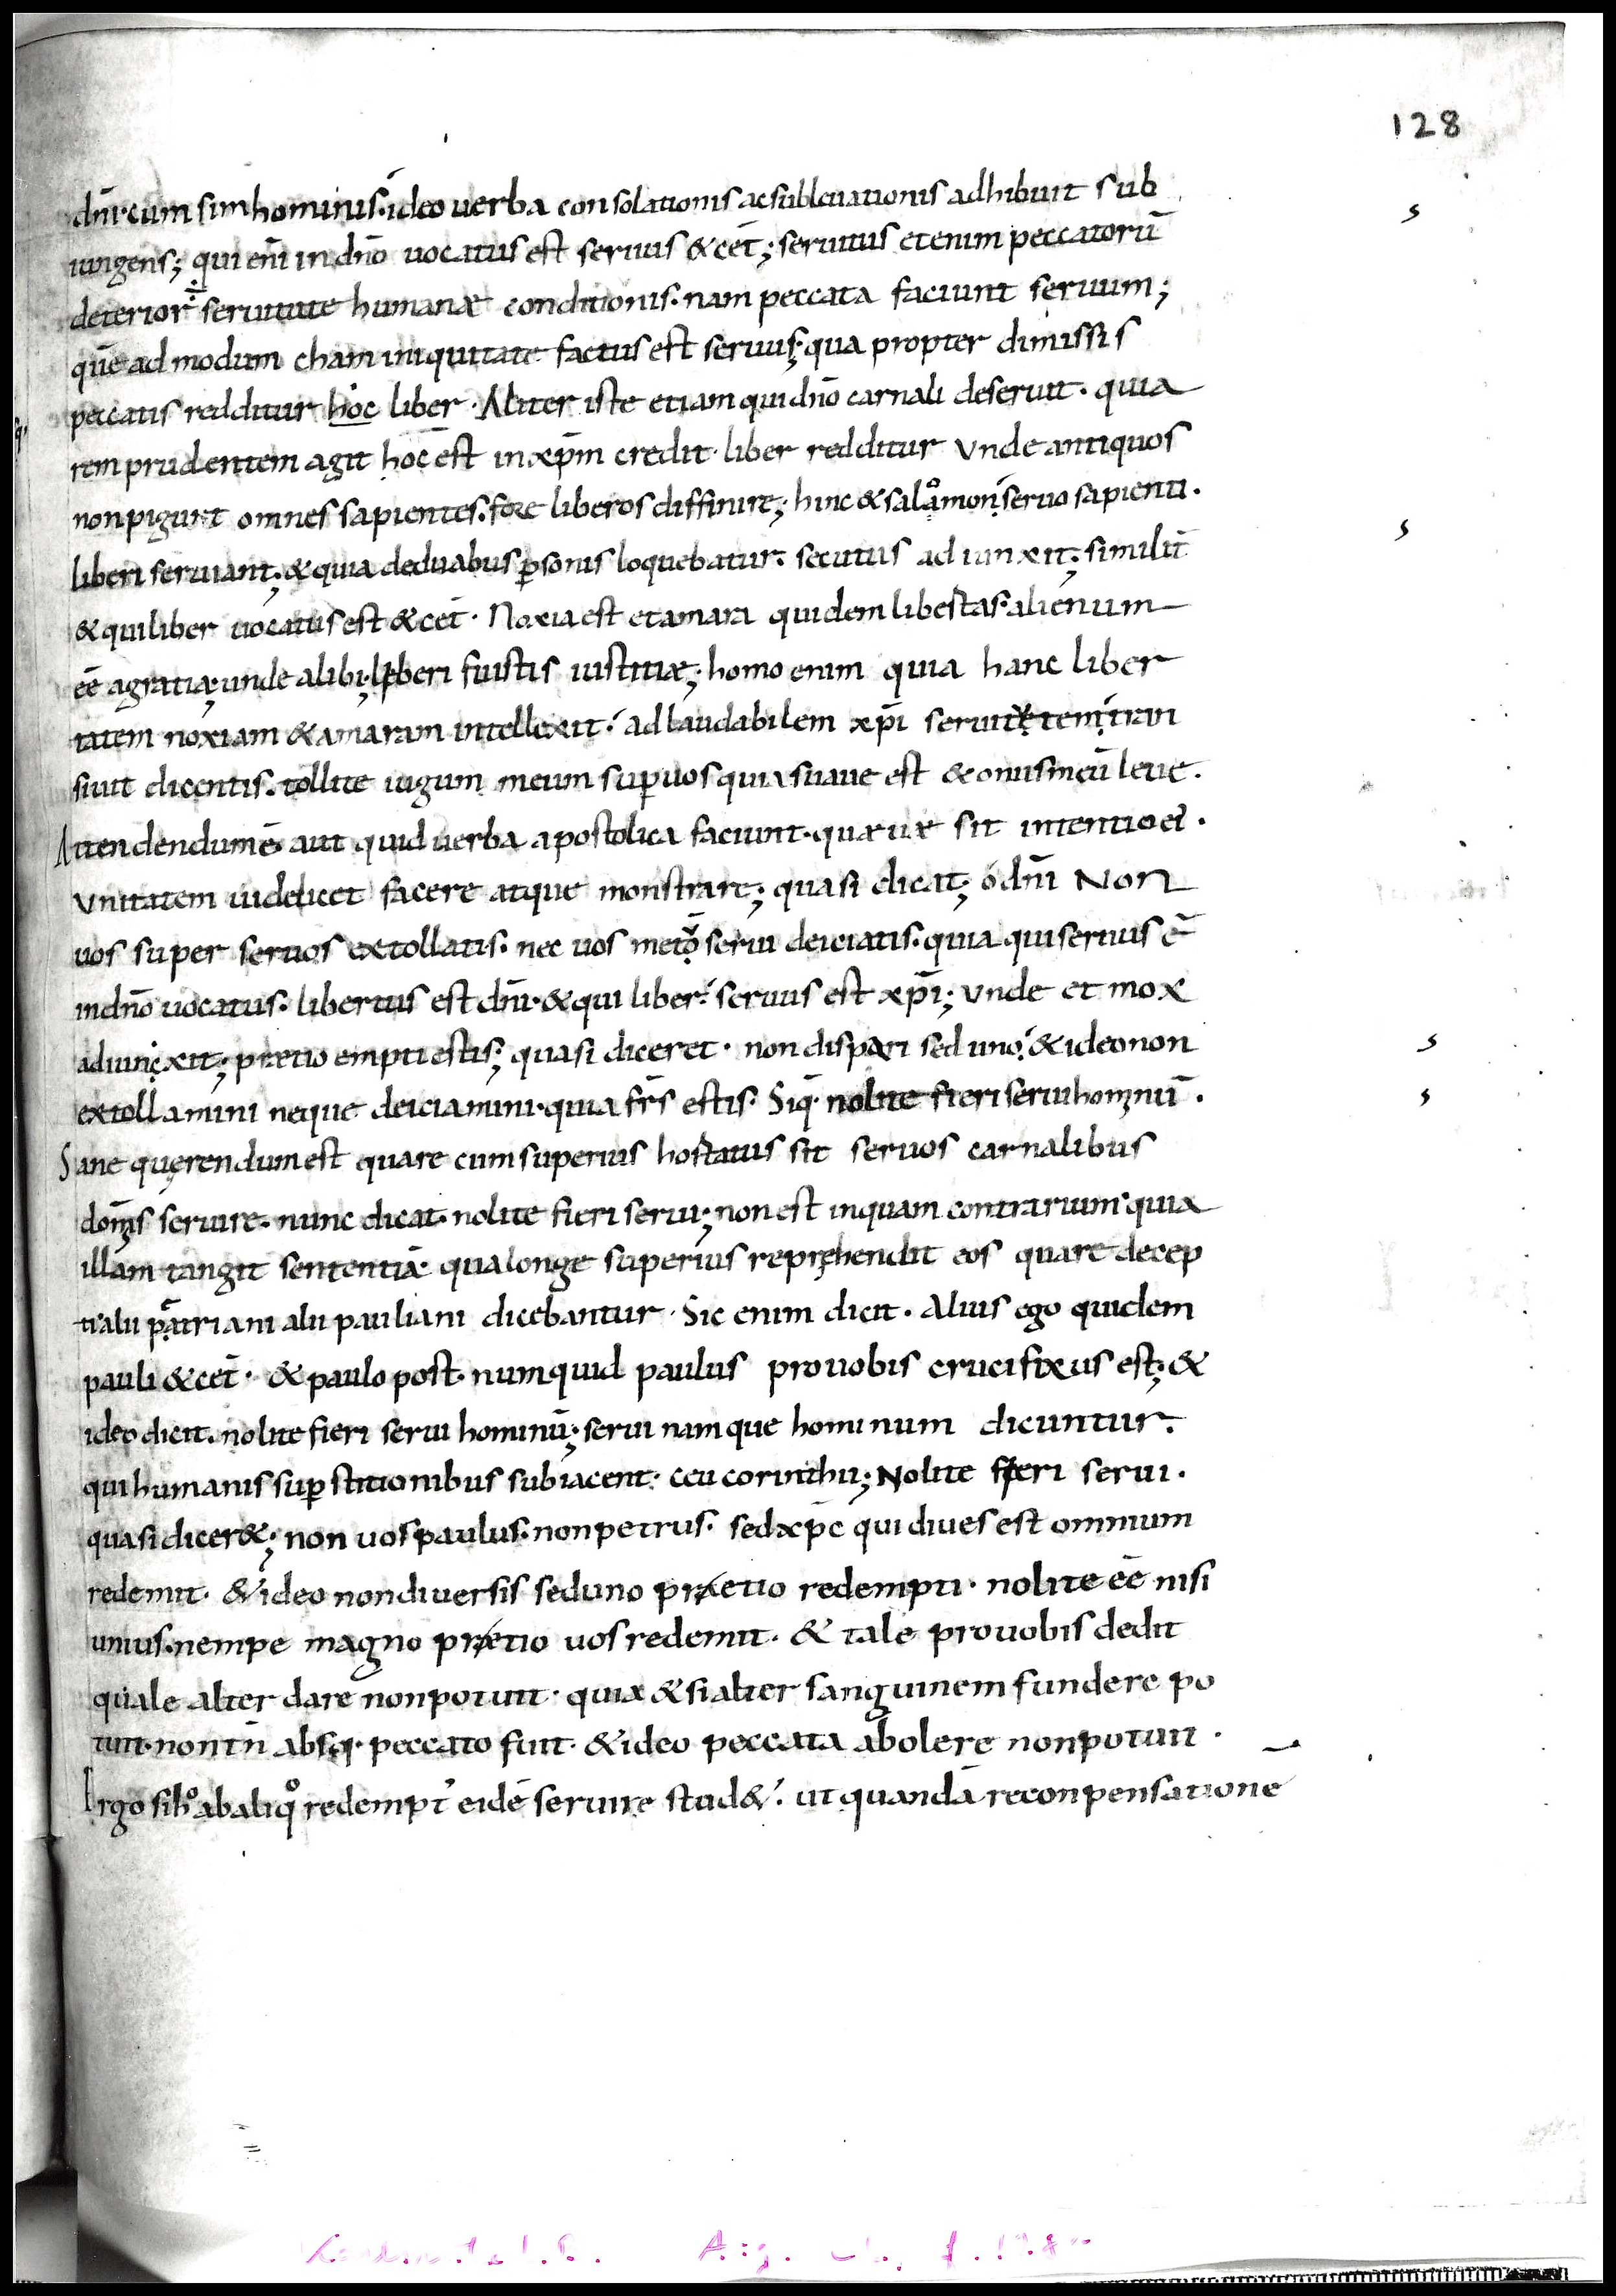 128
dn̄i cum sim hominis. ideo uerba consolationis ac subleuationis adhibuit sub
iungens; qui eni̅ in dn̄o uocatus est seruus & cet̅; seruitus etenim peccatoru̅
deterior ÷ seruitute humanæ conditionis. nam peccata faciunt seruum;
que̅ ad modum cham iniquitate factus est seruus; qua propter dimissis
peccatis redditur hoc liber. Aliter iste etiam qui dn̄o carnali deseruit. quia
rem prudentem agit hoc est in xp̄m credit. liber redditur Vnde antiquos
non pigurt omnes sapientes. fore liberos diffinire; hinc & salomon seruo sapienti.
liberi seruiant; & quia de duabus ꝑsonis loquebatur. secutus ad iunxit; similit̅
& qui liber uocatus est & cet̅. Noxia est et amara quidem libestas. alienum
ee̅ a gratia; unde alibi; liberi fuistis iustitiæ; homo enim quia hanc liber
tatem noxiam & amaram intellexit. ad laudabilem xp̄i seruitutem tran
siuit dicentis. tollite iugum meum suꝑ uos quia suaue est & onus meu̅ leue.
Attendendum e̅ aut quid uerba apostolica faciunt. quæuæ sit intentio ei.
Vnitatem uidelicet facere atque monstrare; quasi dicat; ó dn̄i Non
uos super seruos extollatis. nec uos meto serui deiciatis. quia qui seruus e̅
in dn̄o uocatus. libertus est dn̄i. & qui liber. seruus est xp̄i; Vnde et mox
adiunxit; prætio empti estis; quasi diceret. non dispari sed uno. & ideo non
extollamini neque deiciamini. quia fr̄s estis. Siq̅. nolite fieri serui hominu̅.
Sane querendum est quare cum superius hostatus sit seruos carnalibus
domi̅s seruire. nunc dicat. nolite fieri serui; non est inquam contrarium. quia
illam tangit sententia̅ qua longe superius reprehendit eos quare decep
ti alii pauliani dicebantur. Sic enim dicit. Alius ego quidem
pauli & cet̅. & paulo post. numquid paulus pro uobis crucifixus est; &
ideo dicit. nolite fieri serui hominu̅; serui namque hominum dicuntur.
qui humanis suꝑstitionibus subiacent. ceu corinthii; Nolite fieri serui.
quasi dicer&; non uos paulus. non petrus. sed xp̄c qui diues est omnium
redemit. & ideo non diuersis sed uno prætio redempti. nolite ee̅ nisi
unius. nempe magno prætio uos redemit. & tale pro uobis dedit
quale alter dare non potuit. quia & si alter sanguinem fundere po
tuit. non tn̄ absq. peccato fuit. & ideo peccata abolere non potuit.
Ergo si hº ab aliqº redempt' eide̅ seruire stud&. ut quanda̅ reconpensatione